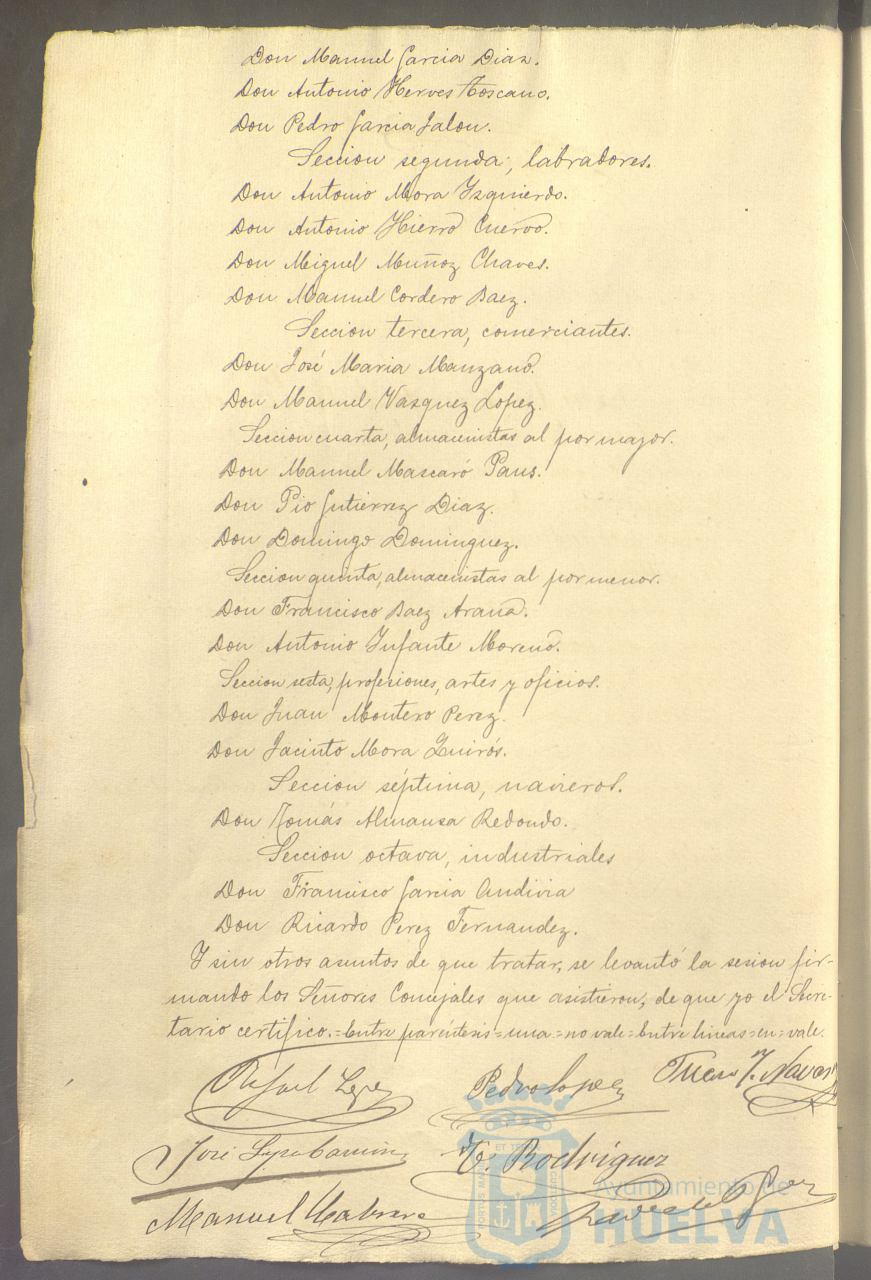 Don Manuel Garcia Diaz.
Don Antonio Herves Toscano.
Don Pedro Garcia Jalon.
Seccion segunda, labradores.
Don Antonio Mora Yzquierdo.
Don Antonio Hierro Cuervo.
Don Miguel Muñoz Chaves.
Don Manuel Cordero Baez.
Seccion tercera, comerciantes.
Don José Maria Manzano.
Don Manuel Vazquez Lopez.
Seccion cuarta, almacenistas al por mayor.
Don Manuel Mascaró Paus.
Don Pio Gutiérrez Diaz.
Don Domingo Dominguez.
Seccion quinta, almacenistas al por menor.
Don Francisco Baez Arana.
Don Antonio Infante Moreno.
Seccion sesta, profesiones, artes y oficios.
Don Juan Montero Perez.
Don Jacinto Mora Quirós.
Seccion séptima, navieros.
Don Tomás Almansa Redondo.
Seccion octava, industriales
Don Francisco Garcia Andivia
Don Ricardo Perez Fernandez.
Y sin otros asuntos de que tratar, se levantó la sesion fir-
mando los Señores Concejales que asistieron, de que yo el Secre-
tario certifico.=Entre paréntesis=una=no vale=Entre lineas=en=vale.
Rafael Pedro Lopez
José
T. Rodriguez
Manuel
Ayuntamiento de
HUELVA